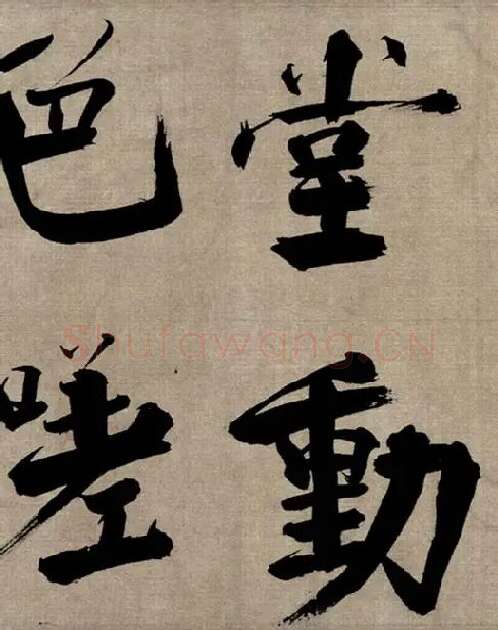 堂動
色嗟
Shufawang.CN